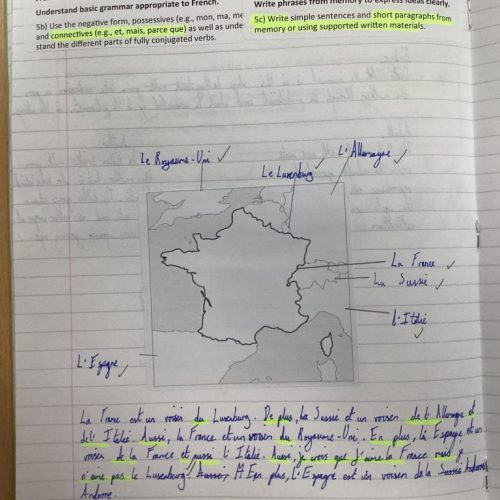 Understand basic grammar appropriate to French.
5b) Use the negative form, possessives (e.g., mon, ma, me
and connectives (e.g., et, mais, parce que) as well as unde
stand the different parts of fully conjugated verbs.
Write phrases from memory to express ideas clearly.
5c) Write simple sentences and short paragraphs from
memory or using supported written materials.
Le Royaume-Uni
Le Luxenburg
L'Allemagne
La France
La Sussie
L'Italie
L'Espagne
La Franc est un voisin du Luxenburg. De plus, la Sussie et un voisen de l'Allemagne et
de l'Italie. Aussi, la France et un voisen du Royaume-Uni. En plus, la Espagne et un
voisen de la France et aussi l'Italie. Aussi, je crois que j'aime la France mais je
n'aime pas le Luxenburg. En plus, L'Espagne est un voisen de la Sussie Andorre.
Andorre.